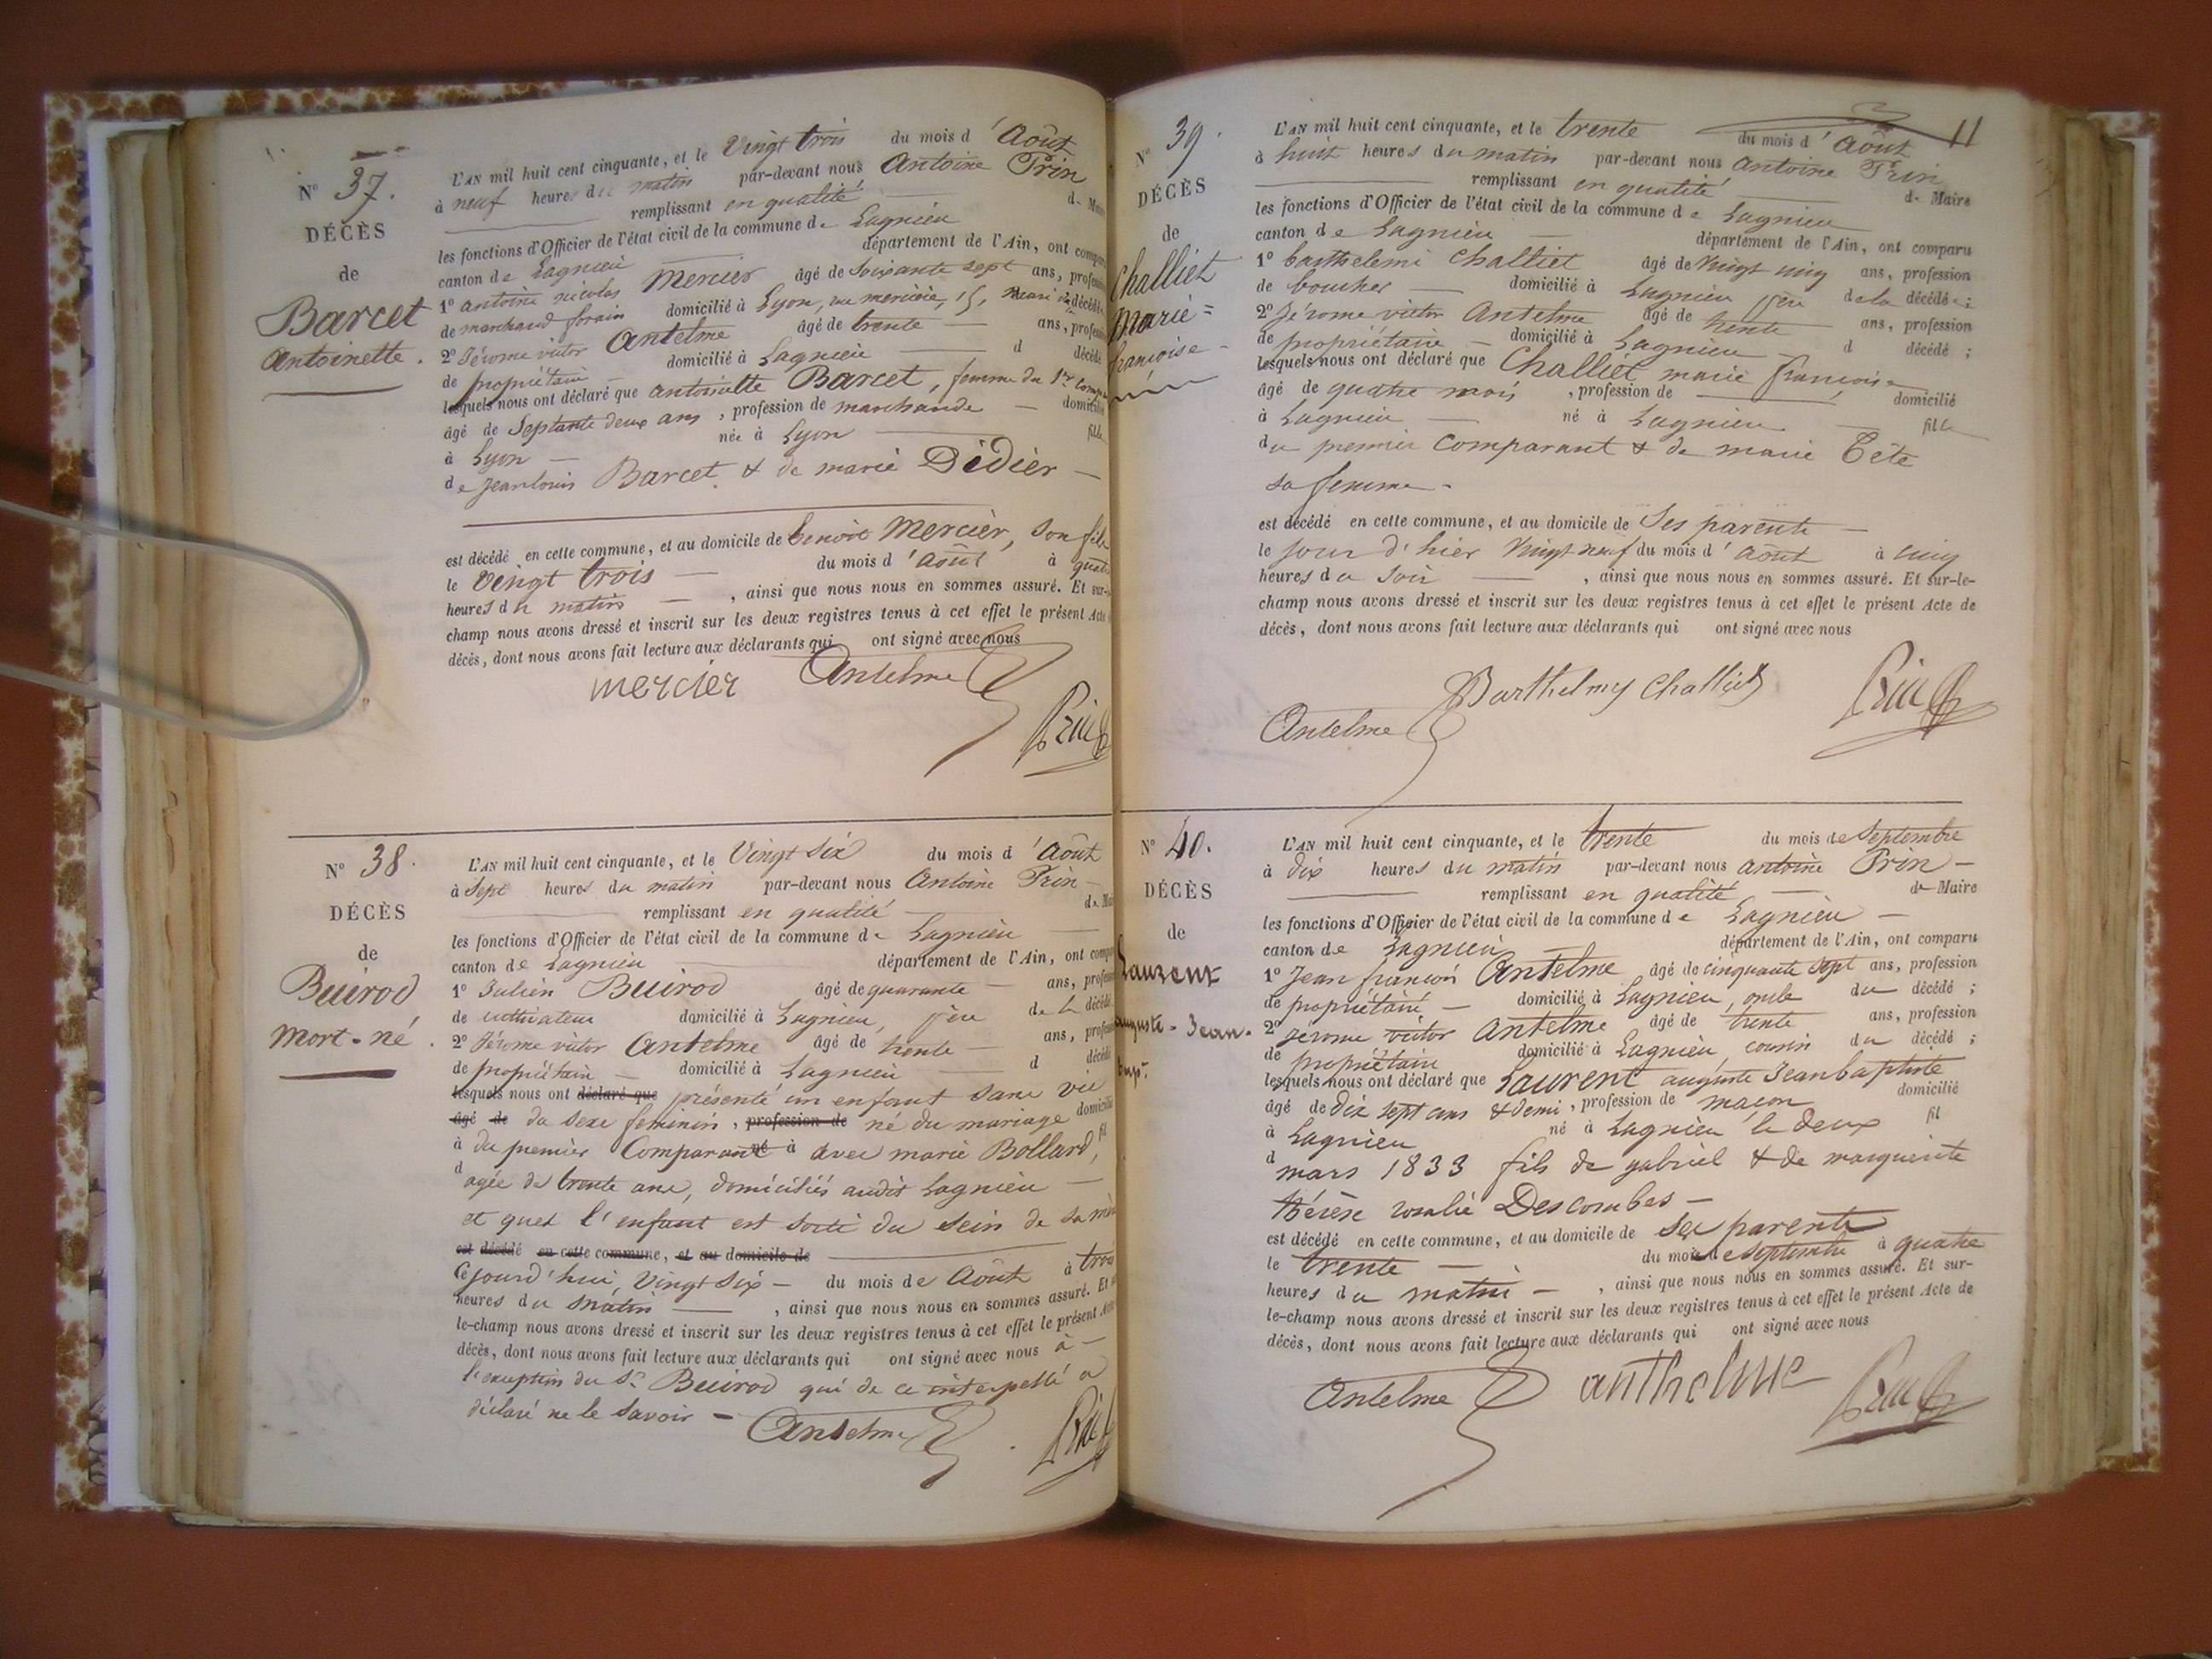 N° 37.
DÉCÈS
de
Barcet
Antoinette.
L'AN mil huit cent cinquante, et le Vingt trois du mois d'Août
à neuf heures du matin par-devant nous Antoine Prin
remplissant en qualité de
les fonctions d'Officier de l'état civil de la commune de Lagnieu
canton de Lagnieu département de l'Ain, ont
1° antoine nicolas Mercier âgé de soixante sept ans,
de marchand forain domicilié à Lyon, rue mercière, 15, mari de la
2° Jérome victor Antelme âgé de trente ans,
de propriétaire domicilié à Lagnieu d décédé
lesquels nous ont déclaré que antoinette Barcet, femme du 1er
âgé de Septante deux ans, profession de marchande
à Lyon née à Lyon fille
de Jean louis Barcet & de marie Didier
est décédé en cette commune, et au domicile de benoit Mercier, son fils
le Vingt trois du mois d'août à
heures du matin, ainsi que nous nous en sommes assuré. Et sur-
champ nous avons dressé et inscrit sur les deux registres tenus à cet effet le présent Acte
décès, dont nous avons fait lecture aux déclarants qui ont signé avec nous
mercier Antelme Prin
N° 38.
DÉCÈS
de
Buirod
Mort-né.
L'AN mil huit cent cinquante, et le Vingt Six du mois d'Août
à Sept heures du matin par-devant nous Antoine Prin
remplissant en qualité de
les fonctions d'Officier de l'état civil de la commune de Lagnieu
canton de Lagnieu département de l'Ain, ont
1° Julien Buirod âgé de quarante ans,
de cultivateur domicilié à Lagnieu, père de la décédé
2° Jérome victor Antelme âgé de trente ans,
de propriétaire domicilié à Lagnieu d décédé
lesquels nous ont déclaré que présenté un enfant sans vie
âgé de du sexe feminin, profession de né du mariage
à du premier Comparant né à avec marie Bollard, fil
d agée de trente ans, domiciliés audit Lagnieu
et quet l'enfant est sorti du sein de sa
est décédé en cette commune, et au domicile de
Cejourd'hui, Vingt Six du mois de Août à
heures du matin, ainsi que nous nous en sommes assuré. Et
le-champ nous avons dressé et inscrit sur les deux registres tenus à cet effet le présent
décès, dont nous avons fait lecture aux déclarants qui ont signé avec nous à
l'exception du Sr Buirod qui de ce interpellé a
déclaré ne le savoir Antelme Prin
11
N° 39.
DÉCÈS
de
Challiet
Marie=
françoise
L'AN mil huit cent cinquante, et le trente du mois d'Août
à huit heures du matin par-devant nous Antoine Prin
remplissant en qualité de Maire
les fonctions d'Officier de l'état civil de la commune de Lagnieu
canton de Lagnieu département de l'Ain, ont comparu
1° barthelemi Challiet âgé de Vingt cinq ans, profession
de boucher domicilié à Lagnieu père de la décédée;
2° Jérome victor Antelme âgé de trente ans, profession
de propriétaire domicilié à Lagnieu d décédé;
lesquels nous ont déclaré que Challiet marie françoise
âgé de quatre mois, profession de domicilié
à Lagnieu né à Lagnieu fille
du premier comparant & de marie Tête
sa femme.
est décédé en cette commune, et au domicile de Ses parents
le jour d'hier Vingt neuf du mois d'août à cinq
heures du soir, ainsi que nous nous en sommes assuré. Et sur-le-
champ nous avons dressé et inscrit sur les deux registres tenus à cet effet le présent Acte de
décès, dont nous avons fait lecture aux déclarants qui ont signé avec nous
Barthelmy Challiet Prin
Antelme
N° 40.
DÉCÈS
de
Laurent
auguste-Jean-
bapt.
L'AN mil huit cent cinquante, et le trente du mois de Septembre
à dix heures du matin par-devant nous antoine Prin
remplissant en qualité de Maire
les fonctions d'Officier de l'état civil de la commune de Lagnieu
canton de Lagnieu département de l'Ain, ont comparu
1° Jean françois Antelme âgé de cinquante sept ans, profession
de propriétaire domicilié à Lagnieu, oncle du décédé;
2° Jérome victor Antelme âgé de trente ans, profession
de propriétaire domicilié à Lagnieu, cousin du décédé;
lesquels nous ont déclaré que Laurent auguste Jean baptiste
âgé de dix sept ans & demi, profession de maçon domicilié
à Lagnieu né à Lagnieu le deux fil
d mars 1833 fils de gabriel & de marguerite
thérèse rosalie Descombes
est décédé en cette commune, et au domicile de ses parents
le trente du mois de septembre à quatre
heures du matin, ainsi que nous nous en sommes assuré. Et sur-
le-champ nous avons dressé et inscrit sur les deux registres tenus à cet effet le présent Acte de
décès, dont nous avons fait lecture aux déclarants qui ont signé avec nous
Antelme anthelme Prin